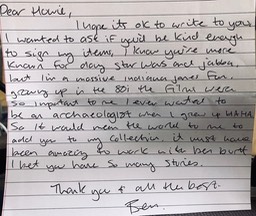 Dear Howie,
I hope its ok to write to you.
I wanted to ask if you'd be kind enough
to sign my items, I know you're more
known for doing star wars and jabba,
but I'm a massive Indiana Jones fan.
growing up in the 80s the films were
so important to me I even wanted to
be an archaeologist when I grew up HAHA
So it would mean the world to me to
add you to my collection. it must have
been amazing to work with ben burtt
I bet you have so many stories.
Thank you & all the best.
Ben